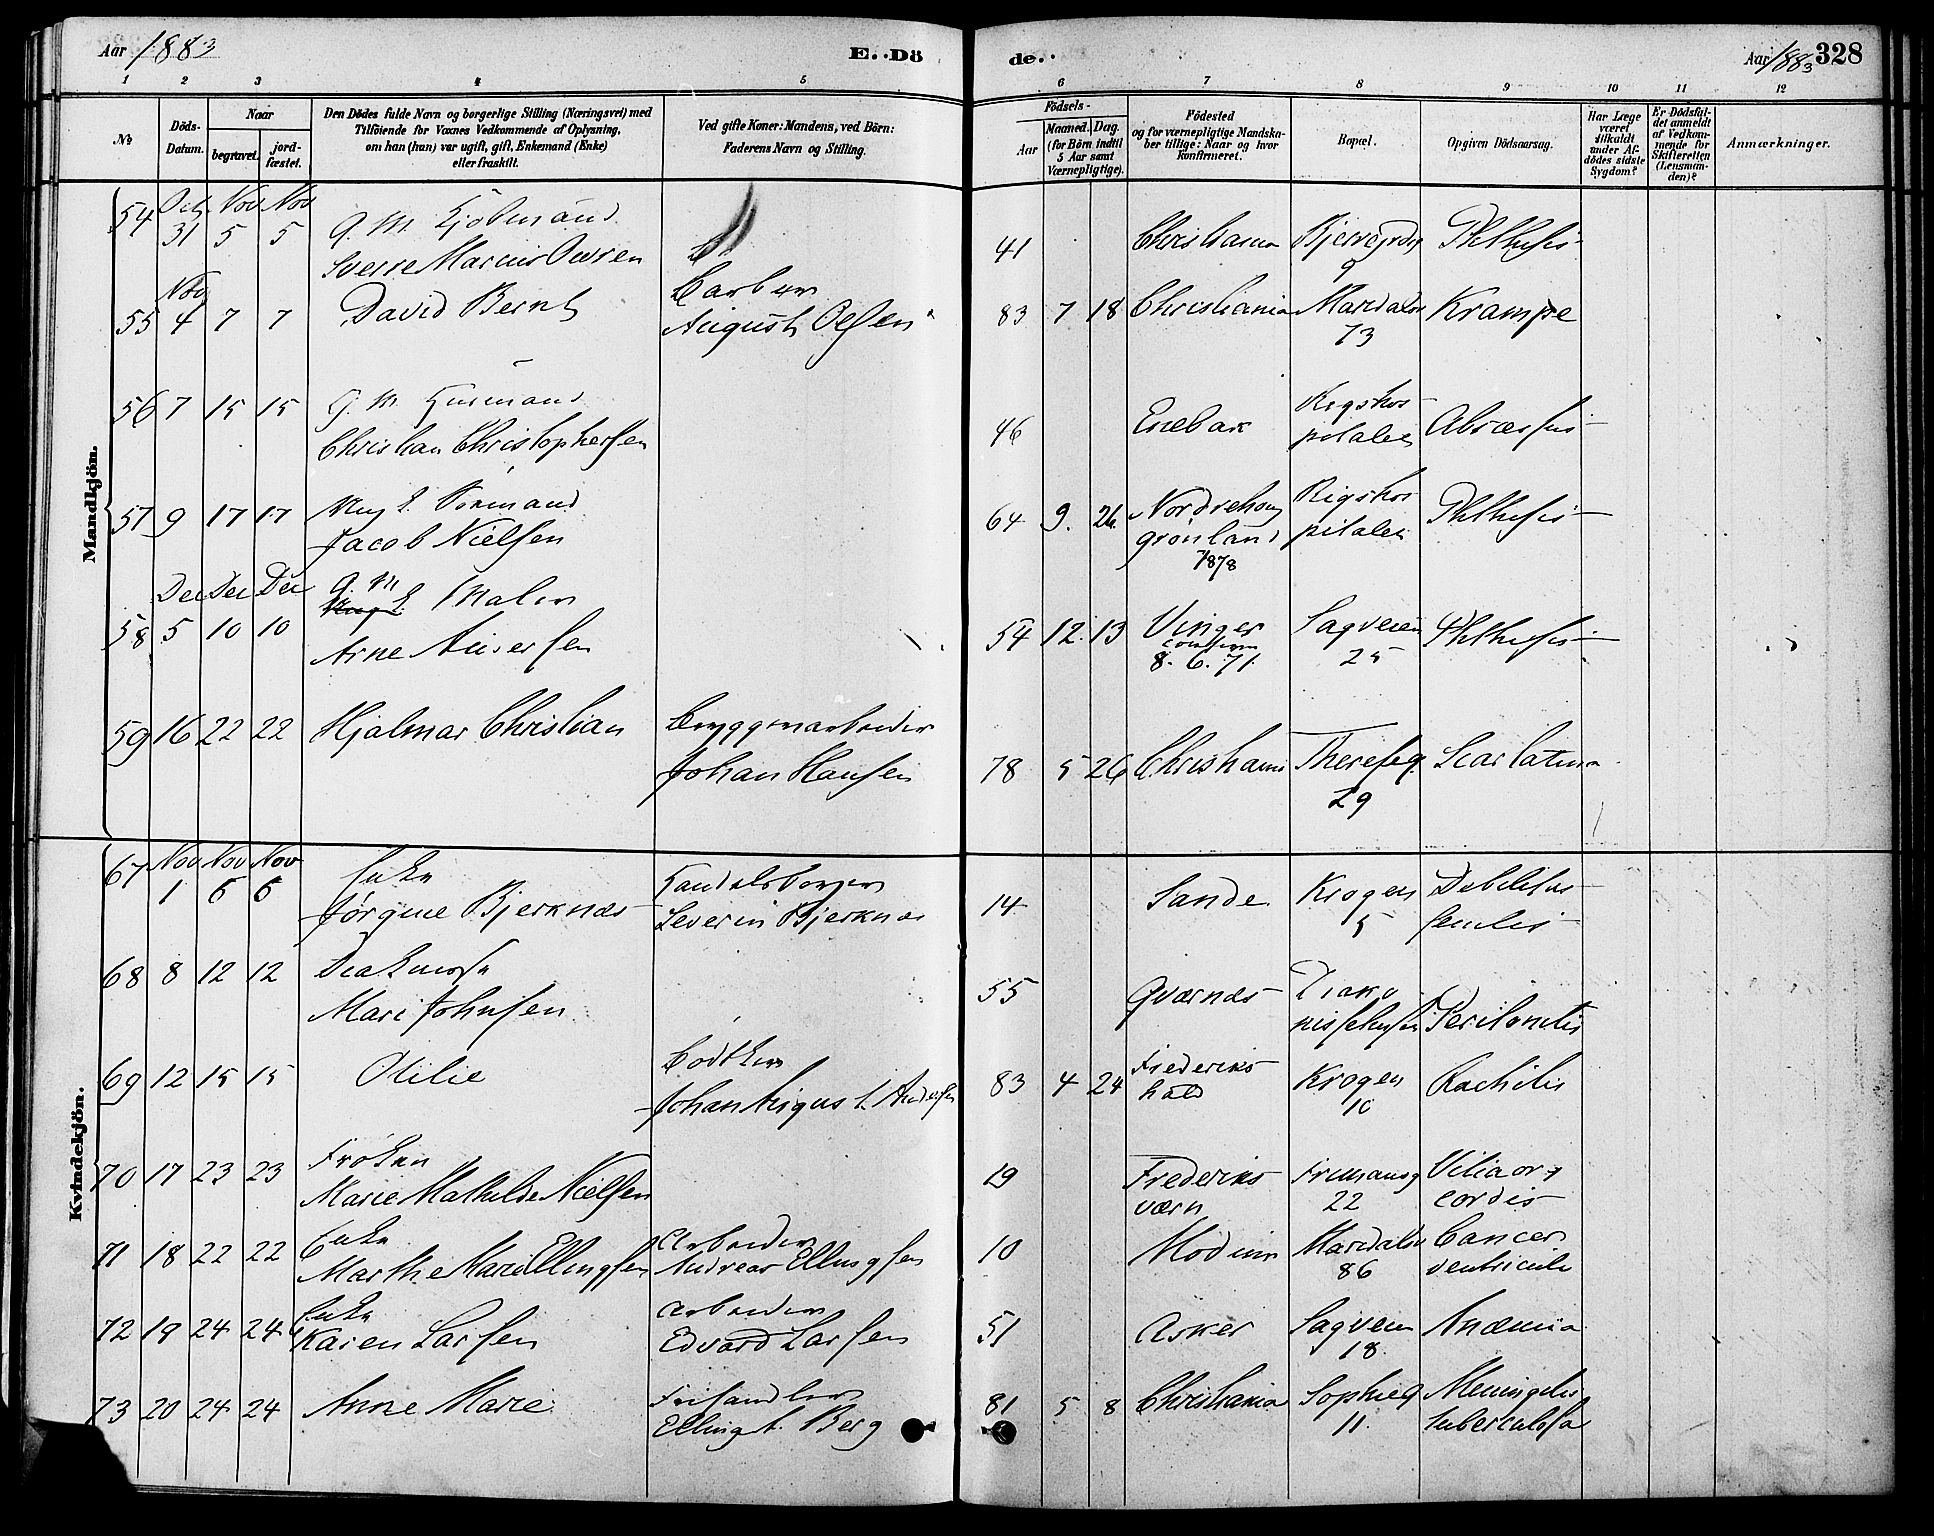 Aar 1883
E. Dö
de.
Aar 1883 328
1 2 3 4 5 6 7 8 9 10 11 12
No
Döds-
Datum.
Naar
begravet.
jord-
fæstet.
Den Dödes fulde Navn og borgerlige Stilling (Næringsvei) med
Tilföiende for Voxnes Vedkommende af Oplysning,
om han (hun) var ugift, gift, Enkemand (Enke)
eller fraskilt.
Ved gifte Koner: Mandens, ved Börn:
Faderens Navn og Stilling.
Födsels-
Aar
Maaned. Dag.
(for Börn indtil
5 Aar samt
Værnepligtige).
Födested
og for værnepligtige Mandska-
ber tillige: Naar og hvor
konfirmeret.
Bopæl.
Opgiven Dödsaarsag.
Har Læge
været
tilkaldt
under Af-
dödes sidste
Sygdom?
Er Dödsfal-
det anmeldt
af Vedkom-
mende for
Skifteretten
(Lensman-
den)?
Anmærkninger.
Mandkjön.
54 Oct 31 Nov 5 Nov 5 G. M. Kjöbmand
Sverre Marius
41 Christiania 9 Phthisis
55 Nov 4 7 7 David Bernt
August Olsen
83 7 18 Christiania Maridalsv 73 Krampe
56 7 15 15 G. M.
Christian Christophersen
46 Enebak Rigshos-
pitalet Abscessus
57 9 17 17 Ung K.
Jacob Nielsen
64 9. 26 Nordrehoug
Grönland
1878
Rigshos
pitalet Phthisis
58 Dec 5 Dec 10 Dec 10 G. M. Maler
Arne Andersen
54 12. 13 Vinger
confirm
8. 6. 71.
Sagveien
25 Phthisis
59 16 22 22 Hjalmar Christian Bryggeriarbeider
Johan Hansen
78 5 26 Christiania Thereseg.
29 Scarlatina
Kvindekjön.
67 Nov 1 Nov 6 Nov 6 Enke
Jörgine Bjerknæs
Handelsborger
Severin Bjerknæs
14 Sande Krogen
5 Debilitas
senilis
68 8 12 12 Diakonisse
Mari Johnsen
55 Qværnæs Diako
nissehuset Peritonitis
69 12 15 15 Otilie Bödker
Johan August Andersen
83 4 24 Frederiks
hald Krogen
10 Rachitis
70 17 23 23 Fröken
Marie Mathilde Nielsen
19 Frederiks
værn Frimansg
22 Vitia org
cordis
71 18 22 22 Enke
Marthe Marie Ellingsen
Arbeider
Andreas Ellingsen
10 Modum Maridalsv
86 Cancer
ventriculi
72 19 24 24 Enke
Karen Larsen
Arbeider
Edvard Larsen
51 Asker Sagveien
18 Anæmia
73 20 24 24 Anne Marie Frihandler
Elling A. Berg
81 5 8 Christiania Sophieg
11. Meningitis
tuberculosa